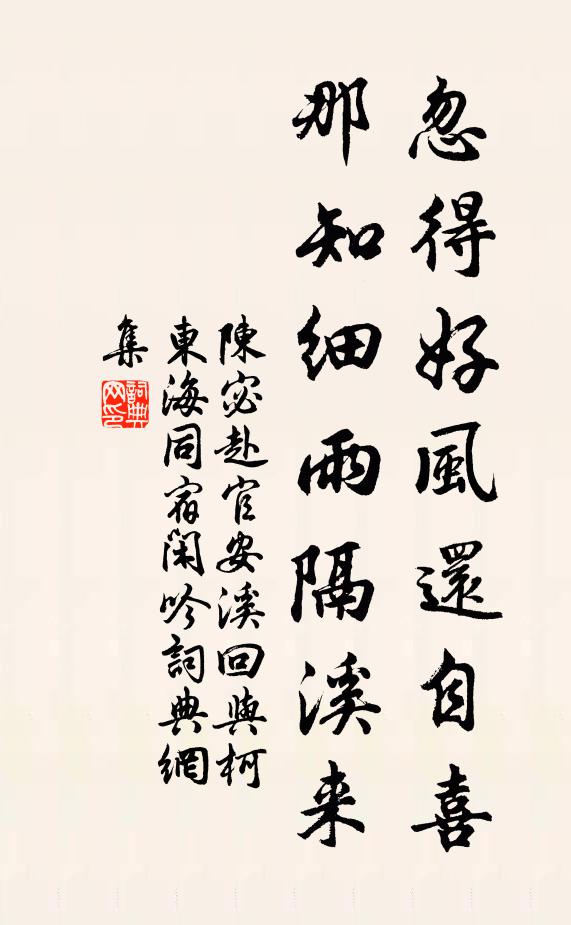 忽得好風還自喜
那知細雨隔溪来
陳宓赴官安溪回與柯
東海同宿閑吟詞典網
集
詞典
网印